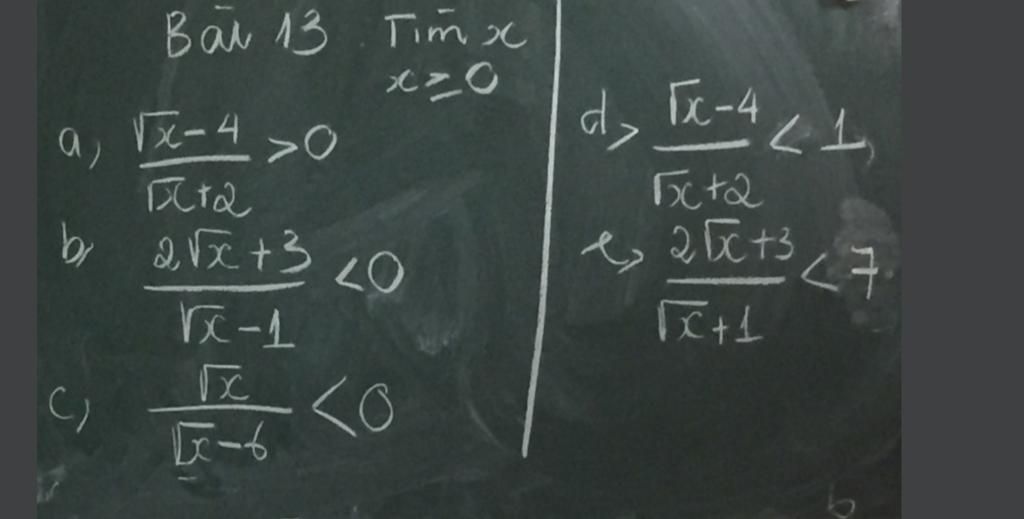 Bài 13. Tìm x
x ≥ 0
a, (√x - 4)/(√x + 2) > 0
b, (2√x + 3)/(√x - 1) < 0
c, √x/(√x - 6) < 0
d, (√x - 4)/(√x + 2) < 1,
e, (2√x + 3)/(√x + 1) < 7
b